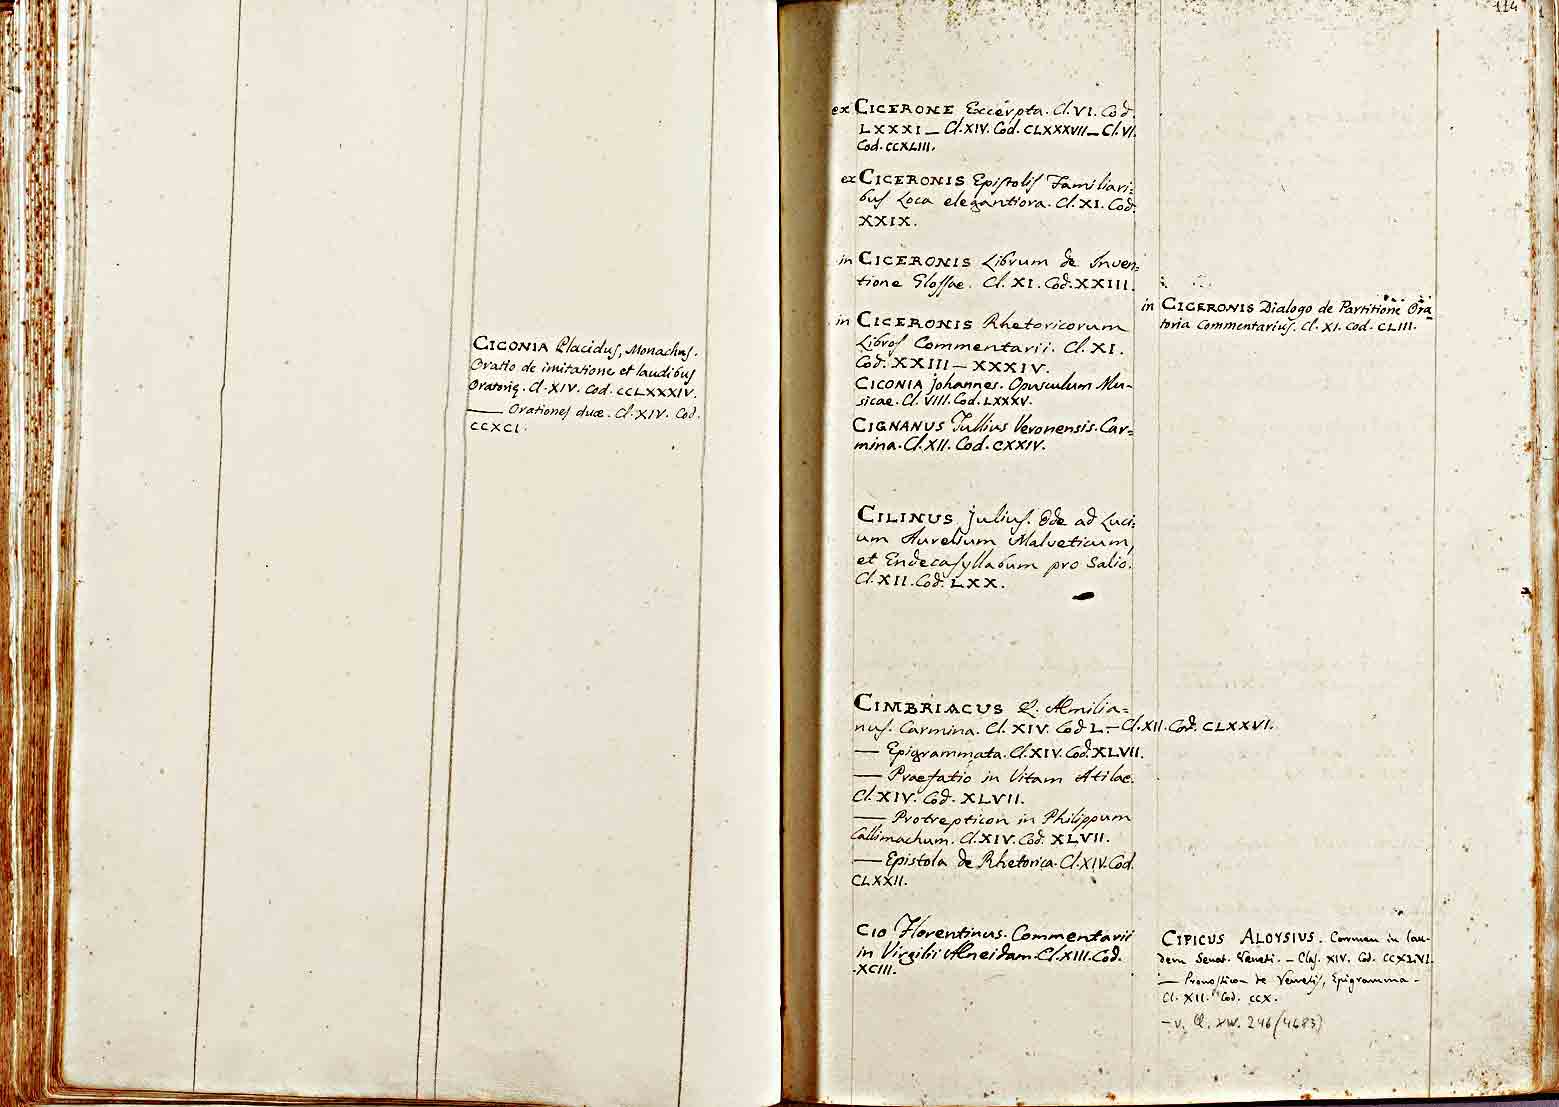 CICONIA Placidus, Monachus.
Oratio de imitatione et laudibus
Oratoriæ. Cl. XIV. Cod. CCLXXXIV.
—— Orationes duæ. Cl. XIV. Cod.
CCXCI.
114
ex CICERONE Excerpta. Cl. VI. Cod.
LXXXI — Cl. XIV. Cod. CLXXXVII — Cl. VI.
Cod. CCXLIII.
ex CICERONIS Epistolis Familiari=
bus Loca elegantiora. Cl. XI. Cod.
XXIX.
in CICERONIS Librum de Inven=
tione Glossae. Cl. XI. Cod. XXIII.
in CICERONIS Rhetoricorum
Libros Commentarii. Cl. XI.
Cod. XXIII — XXXIV.
CICONIA Johannes. Opusculum Mu-
sicae. Cl. VIII. Cod. LXXXV.
CIGNANUS Tullius Veronensis. Car=
mina. Cl. XII. Cod. CXXIV.
CILINUS Julius. Ode ad Luci=
um Aurelium Malveticum,
et Endecasyllabum pro Salio.
Cl. XII. Cod. LXX.
CIMBRIACUS Q. Æmilia=
nus. Carmina. Cl. XIV. Cod. L. — Cl. XII. Cod. CLXXVI.
—— Epigrammata. Cl. XIV. Cod. XLVII.
—— Praefatio in Vitam Atilae.
Cl. XIV. Cod. XLVII.
—— Protrepticon in Philippum
Callimachum. Cl. XIV. Cod. XLVII.
—— Epistola de Rhetorica. Cl. XIV. Cod.
CLXXII.
CIO Florentinus. Commentarii
in Virgilii Æneidam. Cl. XIII. Cod.
XCIII.
in CICERONIS Dialogo de Partitione Ora=
toria Commentarius. Cl. XI. Cod. CLIII.
CIPICUS ALOYSIUS. Carmen in lau-
dem Senat. Veneti. — Clas. XIV. Cod. CCXLVI.
— Pronosticon de Venetiis, Epigramma -
Cl. XII. Cod. CCX.
— v. Q. XIV. 246 (4683)